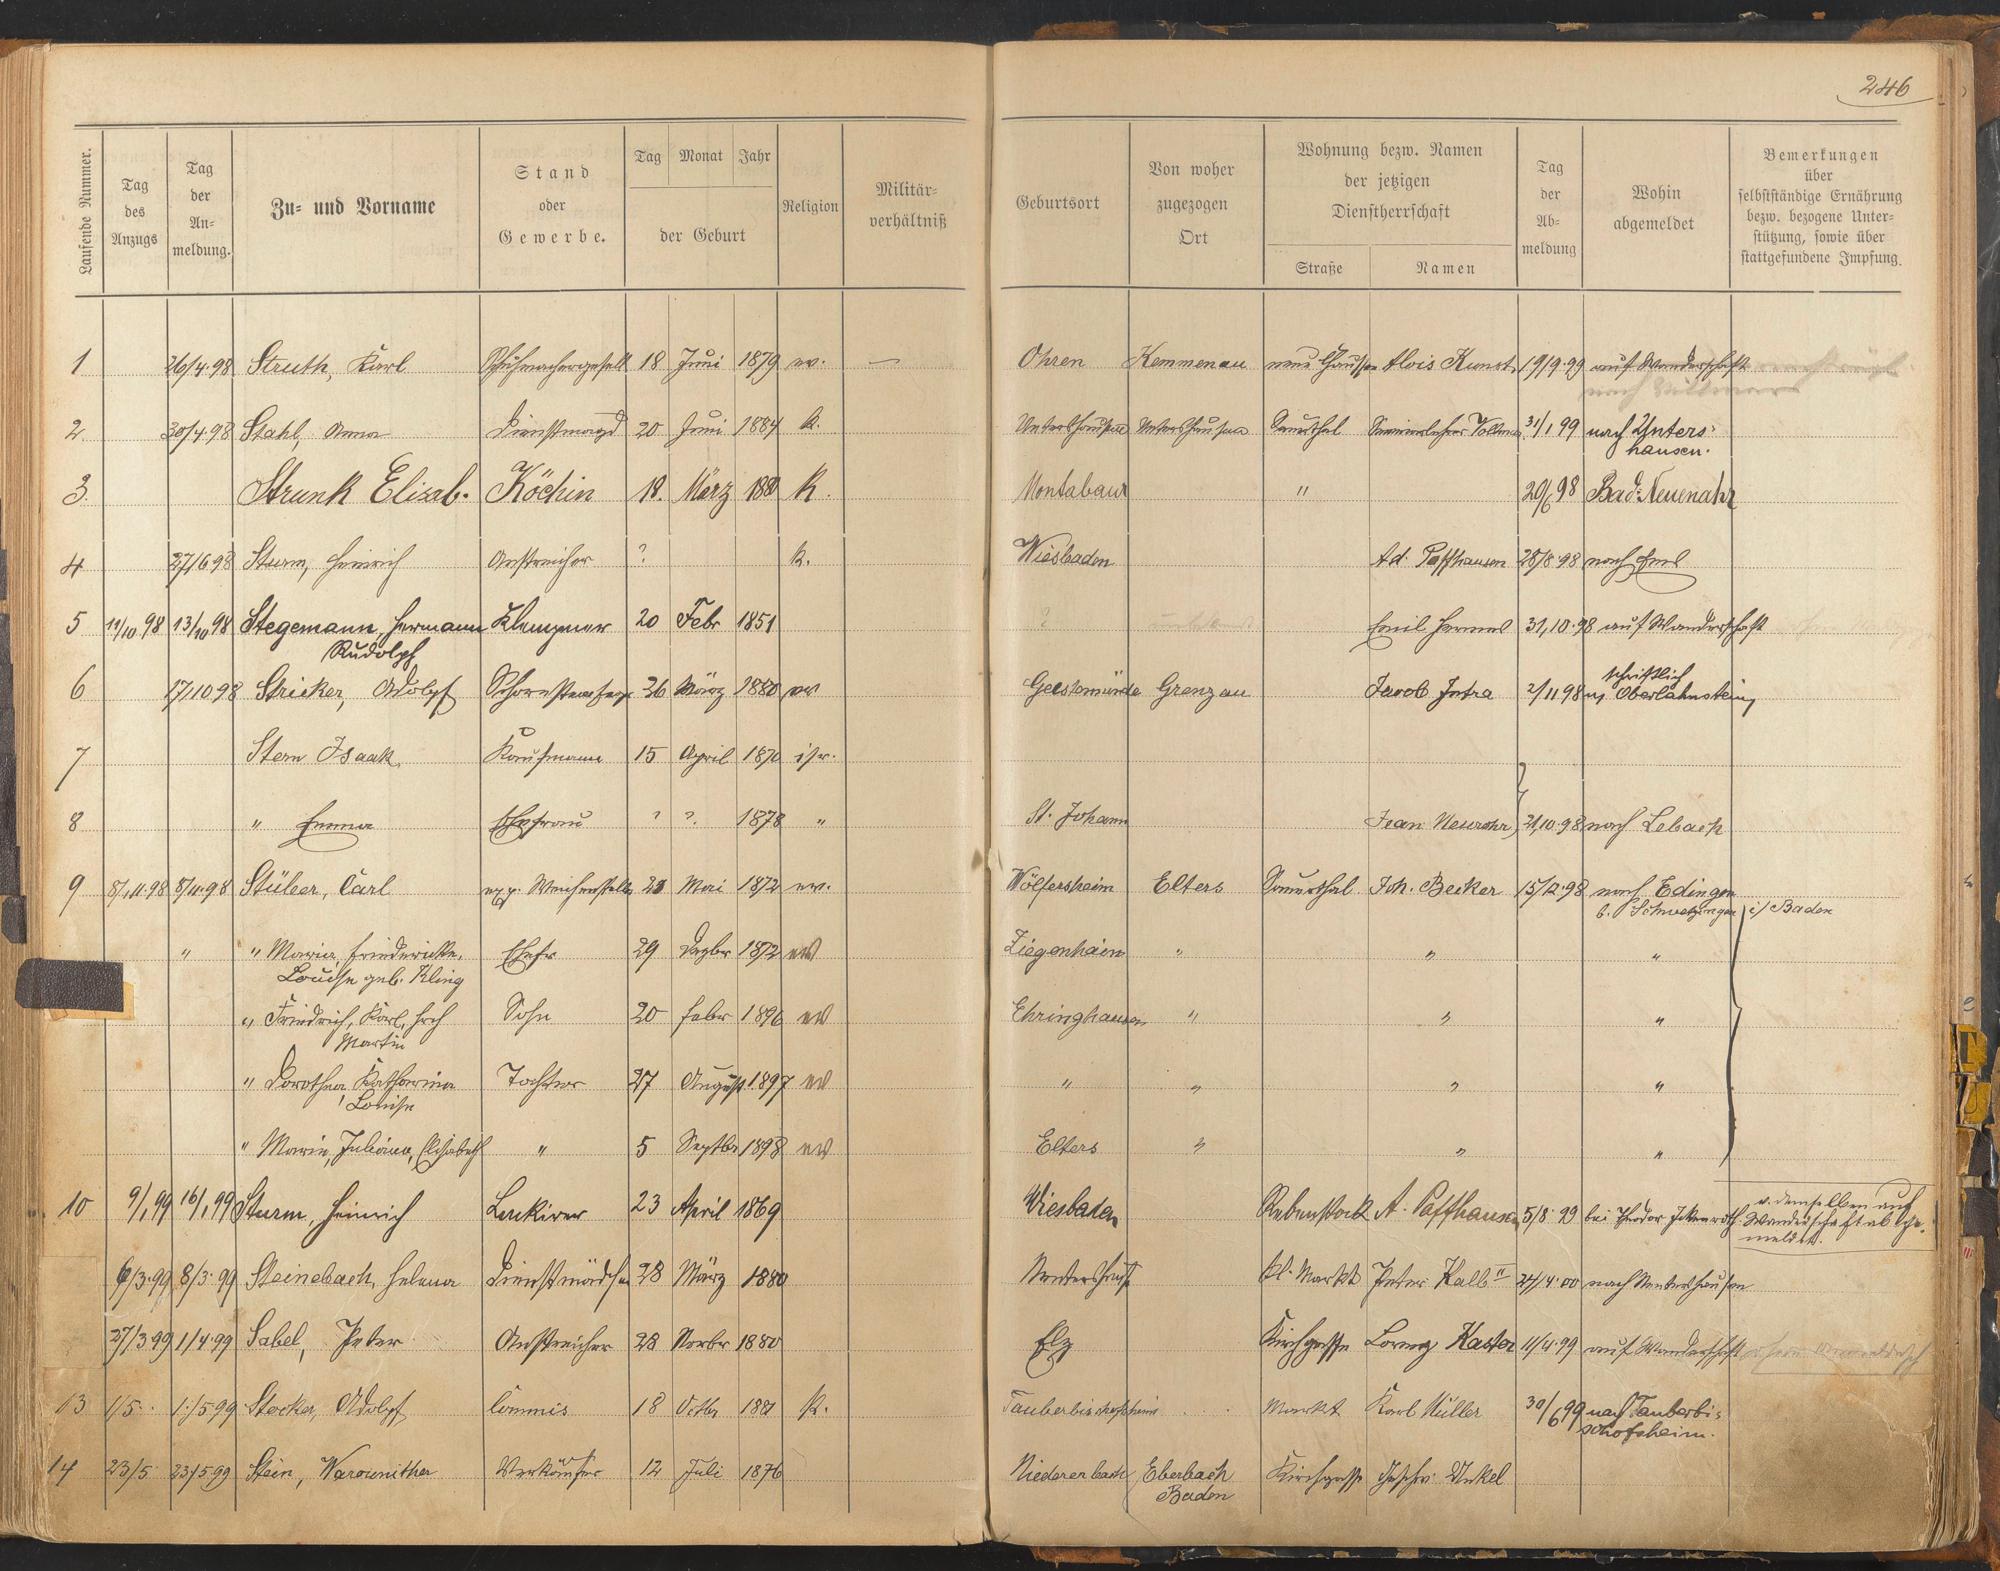 246
Laufende Nummer.
Tag des Anzugs
Tag der An-meldung.
Zu- und Vorname
Stand oder Gewerbe.
Tag Monat Jahr
der Geburt
Religion
Militär-verhältniß
Geburtsort
Von woher zugezogen Ort
Wohnung bezw. Namen der jetzigen Dienstherrschaft
Straße Namen
Tag der Ab-meldung
Wohin abgemeldet
Bemerkungen über selbstständige Ernährung bezw. bezogene Unter-stützung, sowie über stattgefundene Impfung.
1 26/4.98 Struth, Karl Schuhmachergesell 18 Juni 1879 ev. — Ohren Kemmenau Alois Kunst 19/9.99 auf Wanderschaft
2 30/4.98 Stahl, Anna Dienstmagd 20 Juni 1884 k. Untershausen Untershausen Sauerthal 31/1 99 nach Unters-
hausen.
3. Strunk Elisab. Köchin 18. März 1880 k. Montabaur " 20/6 98 Bad-Neuenahr
4 27/6 98 Sturm, Heinrich Anstreicher ? k. Wiesbaden Ad. Paffhausen 28/8.98 nach Ems
5 11/10.98 13/10 98 Stegemann, Hermann Klempner 20 Febr 1851 ? Emil Hermes 31,10.98 auf Wanderschaft
Rudolph
schriftlich
6 17/10 98 Stricker, Adolph Schornsteinfeger 26 März 1880 ev Geestemünde Grenzau Jacob Intra 2/11 98 n. Oberlahnstein
7 Stern Isaak. Kaufmann 15 April 1870 isr.
8 " Emma Ehefrau ? ?. 1878 " St. Johann Jean Neurohr 21,10.98 nach Lebach
9 8/11.98 8/11.98 Stüber, Carl 23 Mai 1872 ev. Wölfersheim Elters Sauerthal Joh. Becker 15/12.98 nach Edingen
b. Schwetzingen i/ Baden
" " Maria, Friedericke, Ehefr 29 Dezbr 1872 ev Ziegenhain " " "
Louise geb. Kling
" Friedrich, Karl, Hrch Sohn 20 Febr 1896 ev Ehringhausen " " "
Martin
" Dorothea, Katharina Tochter 27 August 1897 ev " " " "
Louise
" Marie, Juliana, Elisabeth " 5 Septbr 1898 ev Elters " " "
10 9/1 99 16/1 99 Sturm, Heinrich Lackirer 23 April 1869 Wiesbaden Rebenstock A. Paffhausen 5/8.99 bei Theodor v. demselben auf
Wanderschaft abge-
meldet.
6/3.99 8/3.99 Steinebach, Helena Dienstmädchen 28 März 1880 Nentershausen kl. Markt Peter Kalb II 24/4.00 nach Nentershausen
27/3 99 1/4.99 Sabel, Peter Anstreicher 28 Novbr 1880 Elz Kirchgasse Lorenz Kaster 11/4.99 auf Wanderschaft
13 1/5. 1./5.99 Stocker, Adolph Commis 18 Octbr 1881 k. Tauberbischofsheim Markt Karl Müller 30/6 99 nach Tauberbi-
schofsheim.
14 23/5 23/5.99 Stein, Verkäufer 12 Juli 1876 Niedererbach Eberbach Kirchgasse Geschw. Unkel
Baden